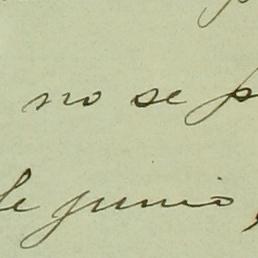 no se p
de junio,